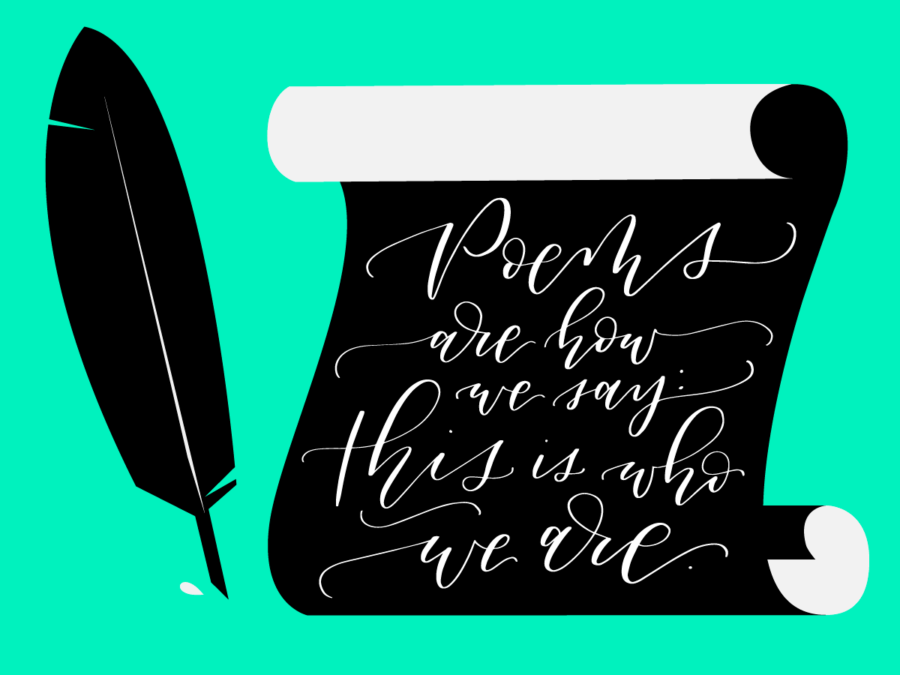 Poems
are how
we say:
this is who
we are.